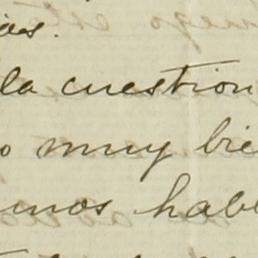 as.
la cuestion
o muy bie
mos habl